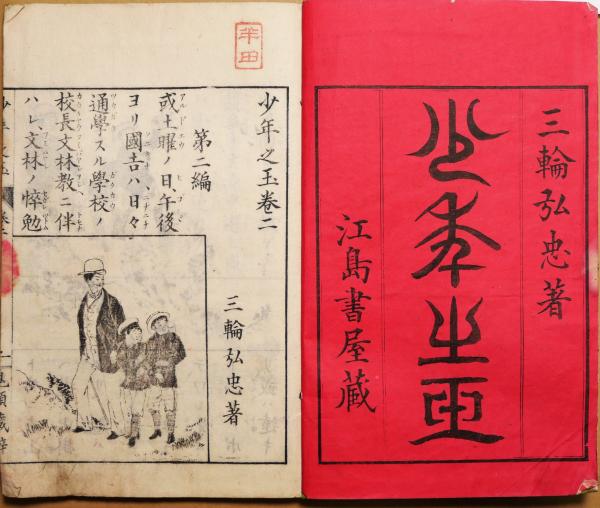 三輪弘忠著
少年之玉
江島書屋藏
半田
少年之玉卷二
三輪弘忠著
第二編
或土曜ノ日、午後
ヨリ國吉ハ日々
通學スル學校ノ
校長文林教ニ伴
ハレ、文林ノ悴勉